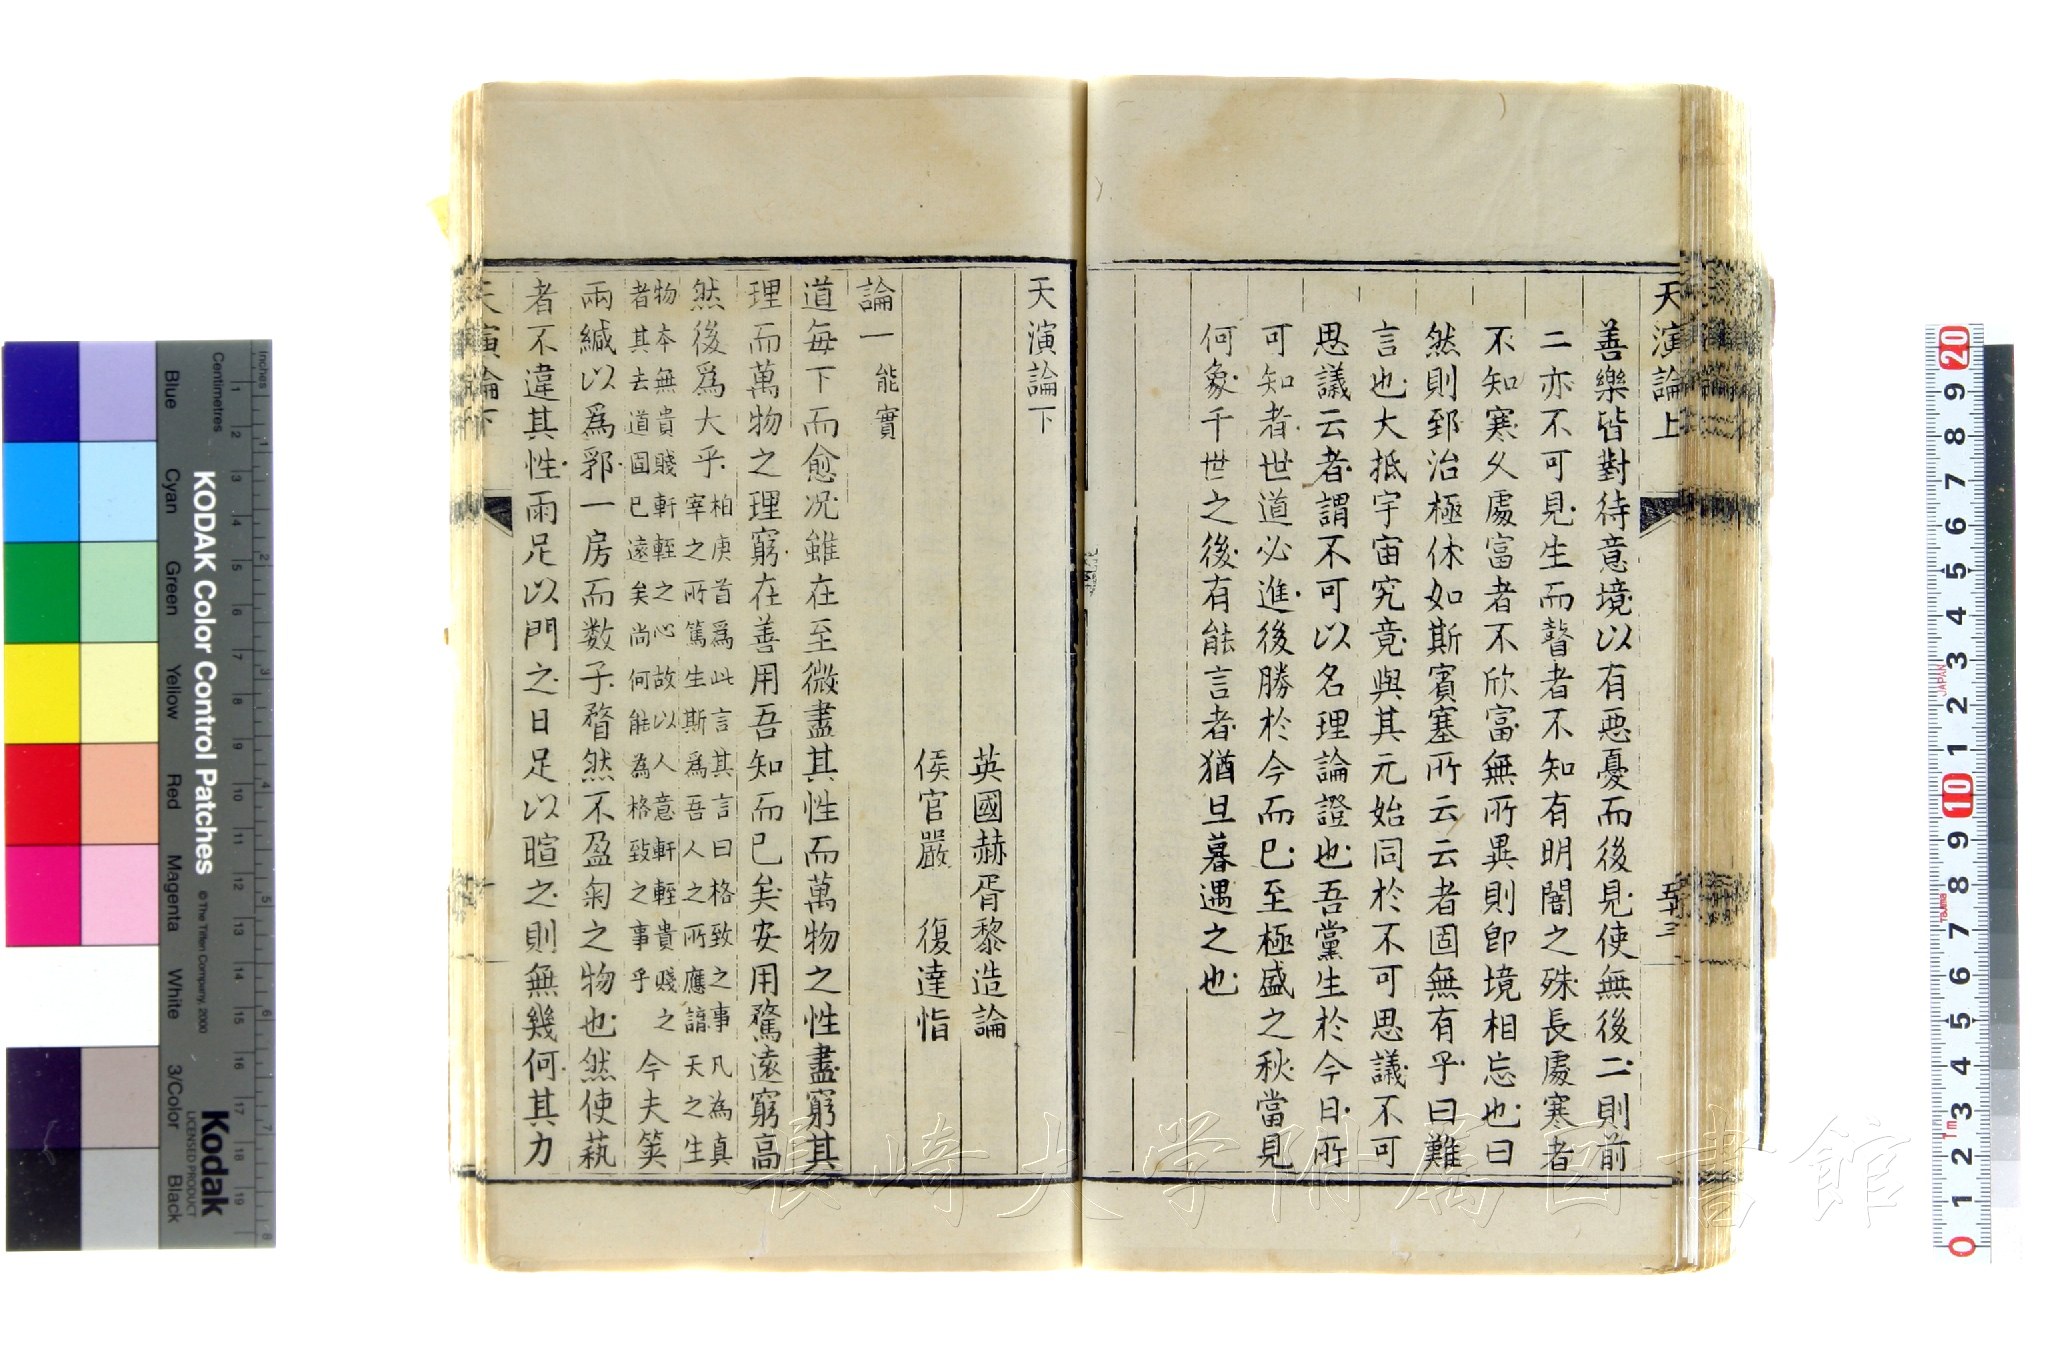 天演論上
五十三
善樂皆對待意境以有惡憂而後見使無後二則前
二亦不可見生而瞽者不知有明闇之殊長處寒者
不知寒久處富者不欣富無所異則卽境相忘也曰
然則郅治極休如斯賓塞所云云者固無有乎曰難
言也大抵宇宙究竟與其元始同於不可思議不可
思議云者謂不可以名理論證也吾黨生於今日所
可知者世道必進後勝於今而已至極盛之秋當見
何象千世之後有能言者猶旦暮遇之也
天演論下
英國赫胥黎造論
侯官嚴 復達恉
論一 能實
道每下而愈况雖在至微盡其性而萬物之性盡窮其
理而萬物之理窮在善用吾知而已矣安用騖遠窮高
然後爲大乎 柏庚首爲此言其言曰格致之事凡為真
宰之所篤生斯爲吾人之所應諳天之生
物本無貴賤軒輊之心故以人意軒輊貴賤之
者其去道固已遠矣尚何能為格致之事乎 今夫筴
兩緘以爲郛一房而数子瞀然不盈匊之物也然使蓺
者不違其性雨足以門之日足以暄之則無幾何其力
天演論下
KODAK Color Control Patches
© The Tiffen Company, 2000
Kodak
LICENSED PRODUCT
Inches
Centimetres
Blue
Cyan
Green
Yellow
Red
Magenta
White
3/Color
Black
1 2 3 4 5 6 7 8 9 10 11 12 13 14 15 16 17 18 19
1 2 3 4 5 6 7 8
20 9 8 7 6 5 4 3 2 1 10 9 8 7 6 5 4 3 2 1 0
JAPAN
Tajima
1m
長崎大学附属図書館